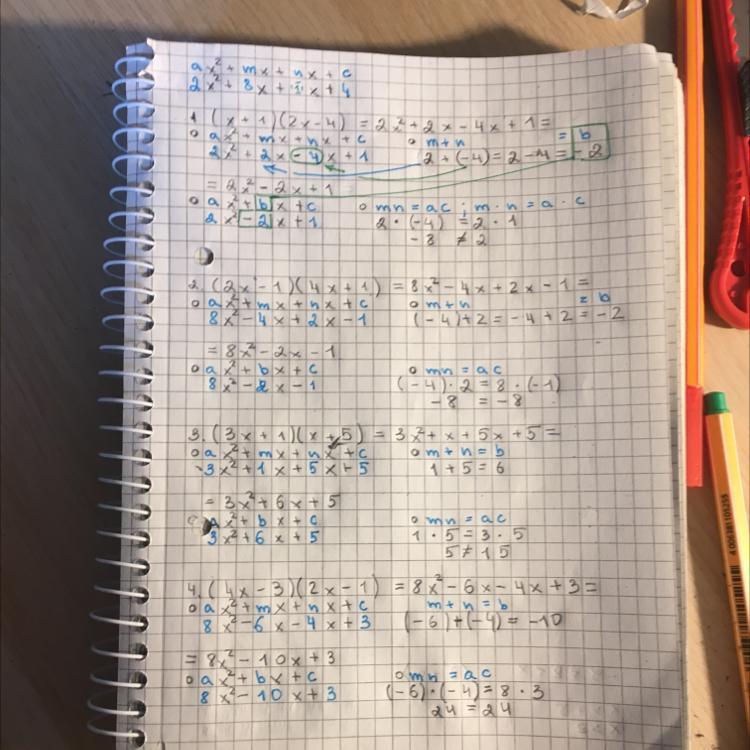 ax² + mx + nx + c
2x² + 8x + 1x + 4
1. (x + 1)(2x - 4) = 2x² + 2x - 4x + 1 =
ax² + mx + nx + c o m + n = b
2x² + 2x - 4x + 1 2 + (-4) = 2 - 4 = -2
= 2x² - 2x + 1
o ax² + bx + c o mn = ac ; m · n = a · c
2x² - 2x + 1 2 · (-4) = 2 · 1
-8 ≠ 2
2. (2x - 1)(4x + 1) = 8x² - 4x + 2x - 1 =
o ax² + mx + nx + c o m + n = b
8x² - 4x + 2x - 1 (-4) + 2 = -4 + 2 = -2
= 8x² - 2x - 1
o ax² + bx + c o mn = ac
8x² - 2x - 1 (-4) · 2 = 8 · (-1)
-8 = -8
3. (3x + 1)(x + 5) = 3x² + x + 5x + 5 =
o ax² + mx + nx + c o m + n = b
3x² + 1x + 5x + 5 1 + 5 = 6
= 3x² + 6x + 5
ax² + bx + c o mn = ac
3x² + 6x + 5 1 · 5 = 3 · 5
5 ≠ 15
4. (4x - 3)(2x - 1) = 8x² - 6x - 4x + 3 =
o ax² + mx + nx + c m + n = b
8x² - 6x - 4x + 3 (-6) + (-4) = -10
= 8x² - 10x + 3
o ax² + bx + c o mn = ac
8x² - 10x + 3 (-6) · (-4) = 8 · 3
24 = 24
4006381105255